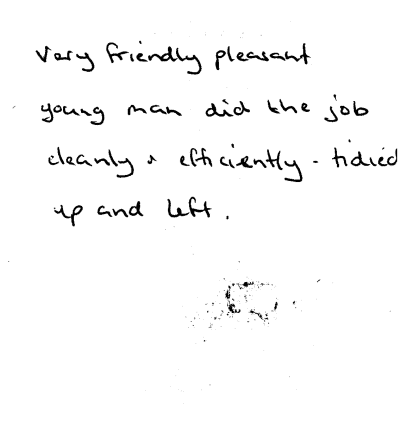 Very friendly pleasant
young man did the job
cleanly & efficiently - tidied
up and left.